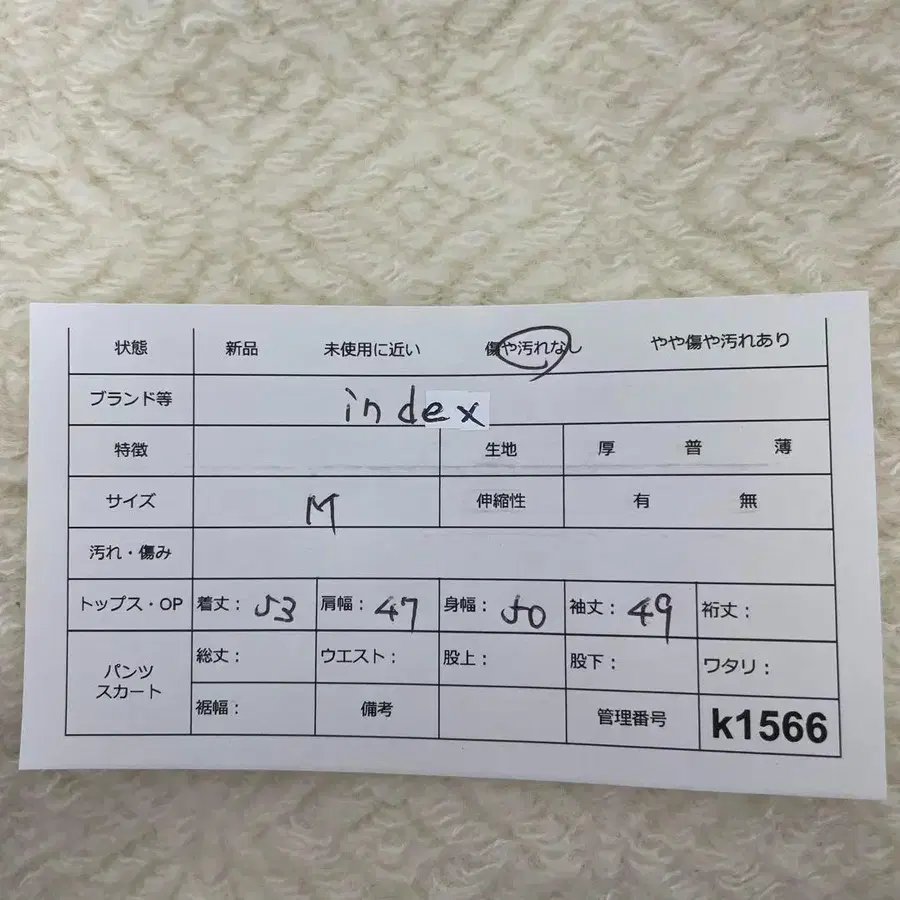 状態 新品 未使用に近い 傷や汚れなし やや傷や汚れあり
ブランド等 index
特徴 生地 厚 普 薄
サイズ M 伸縮性 有 無
汚れ・傷み
トップス・OP 着丈： 53 肩幅： 47 身幅： 50 袖丈： 49 裄丈：
パンツ スカート 総丈： ウエスト： 股上： 股下： ワタリ：
裾幅： 備考 管理番号 k1566